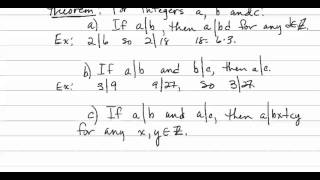 Theorem: For integers a, b and c.
a) If a|b, then a|bd for any d∈ℤ.
Ex: 2|6 so 2|18 18=6·3.
b) If a|b and b|c, then a|c.
Ex: 3|9 9|27, so 3|27.
c) If a|b and a|c, then a|bx+cy
for any x,y∈ℤ.